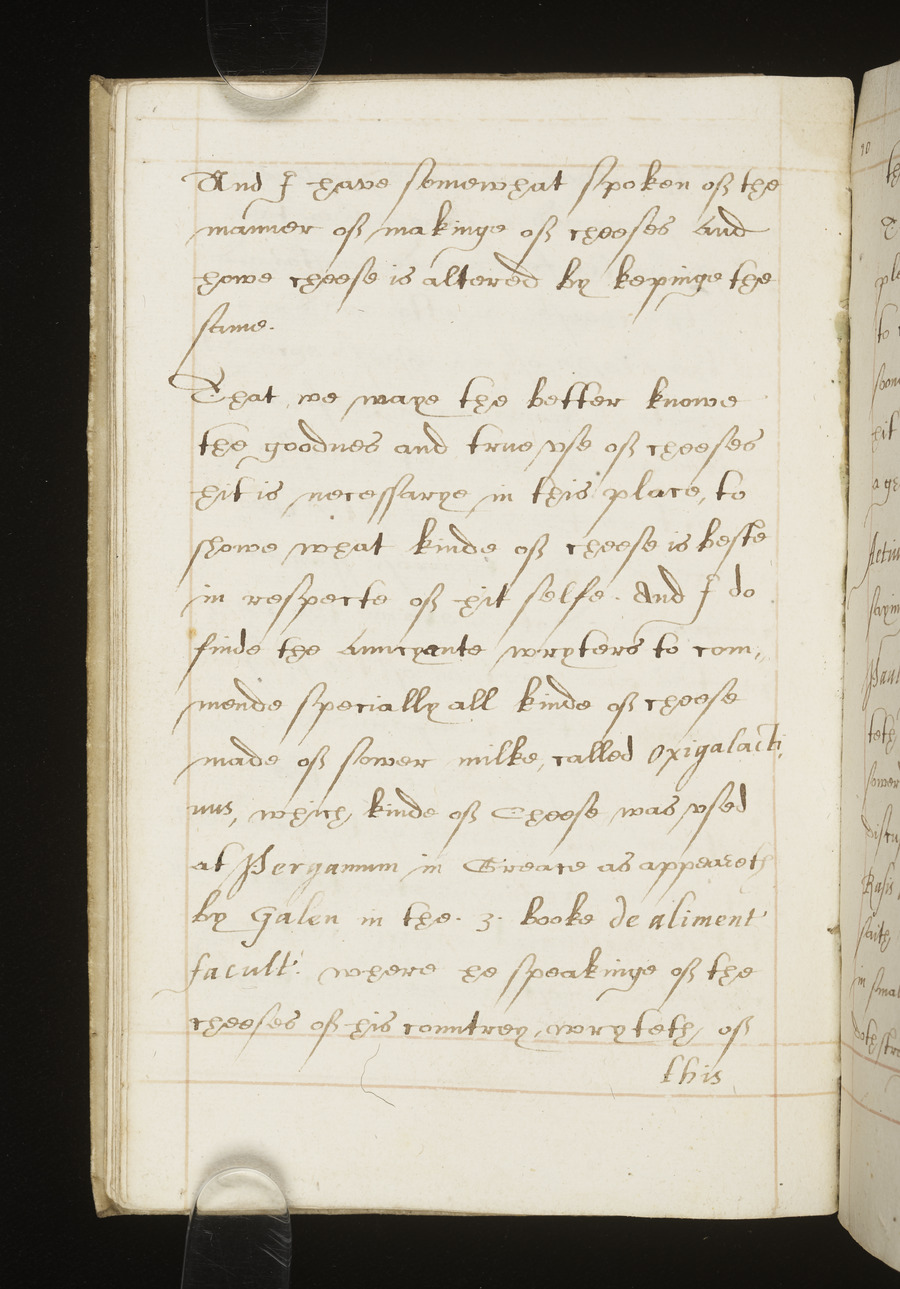 And I have somewhat spoken off the
manner off makinge off cheeses And
howe cheese is altered by kepinge the
same.
That we maye the better knowe
the goodnes and true vse off cheeses
hit is necessarye in this place, to
showe what kinde off cheese is beste
in respecte off hit selfe. And I do
finde the Auncyente wryters to com,,
mende specially all kinde off cheese
made off sower milke, called Oxigalacti,
nus, which kinde off Cheese was vsed
at Pergamum in Greace as appeareth
by Galen in the .3. booke de aliment
facult: where he speakinge off the
cheeses off his countrey, wryteth, off
this
10